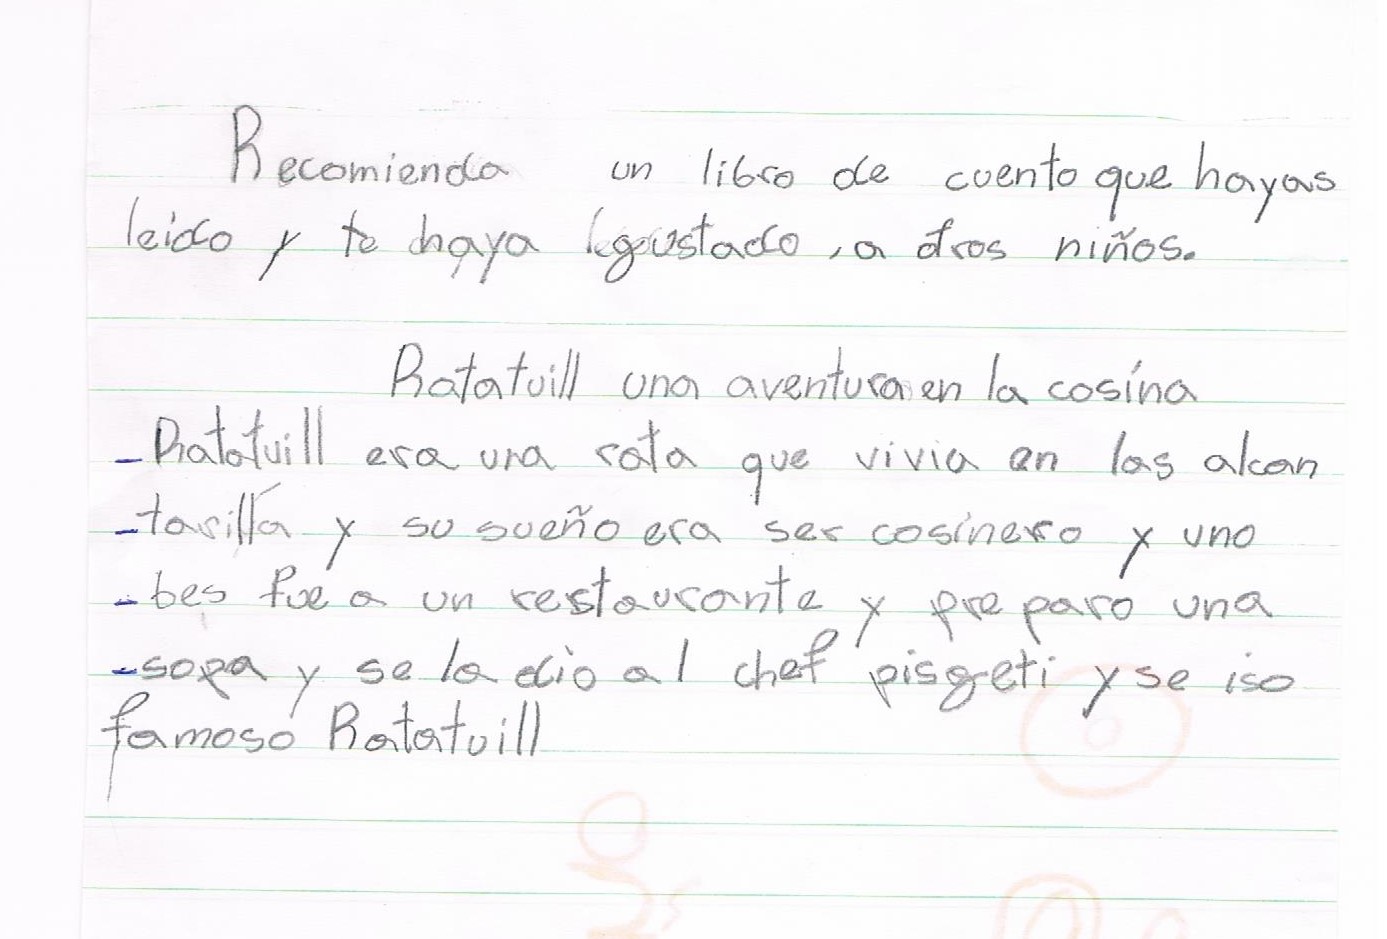 Recomienda un libro de cuento que hayas
leido y te haya gustado, a otros niños.
Ratatuill una aventura en la cosina
-Ratatuill era una rata que vivia en las alcan
-tarilla y su sueño era ser cosinero y uno
-bes fue a un restaurante y pre paro una
-sopa y se la dio al chef pisgreti y se iso
famoso Ratatuill